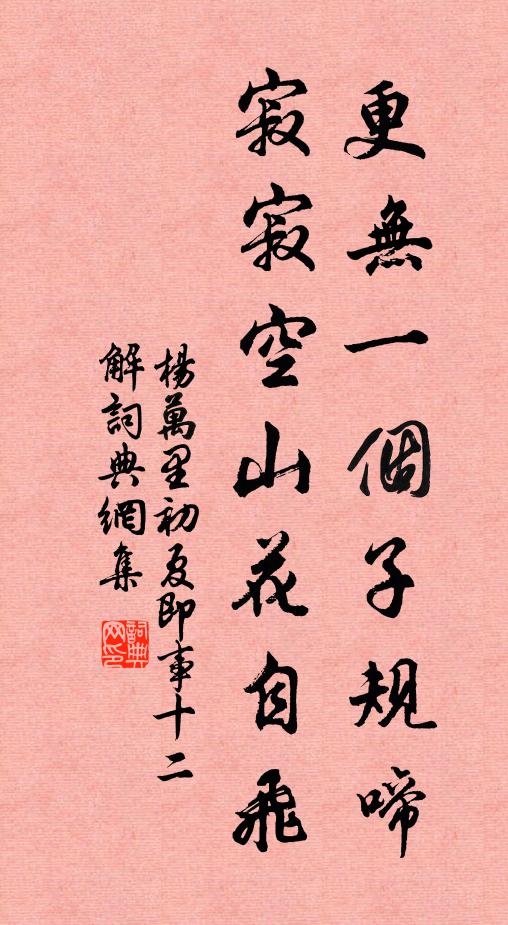 更無一個子規啼
寂寂空山花自飛
楊萬里初夏即事十二
解詞典網集
詞典网印